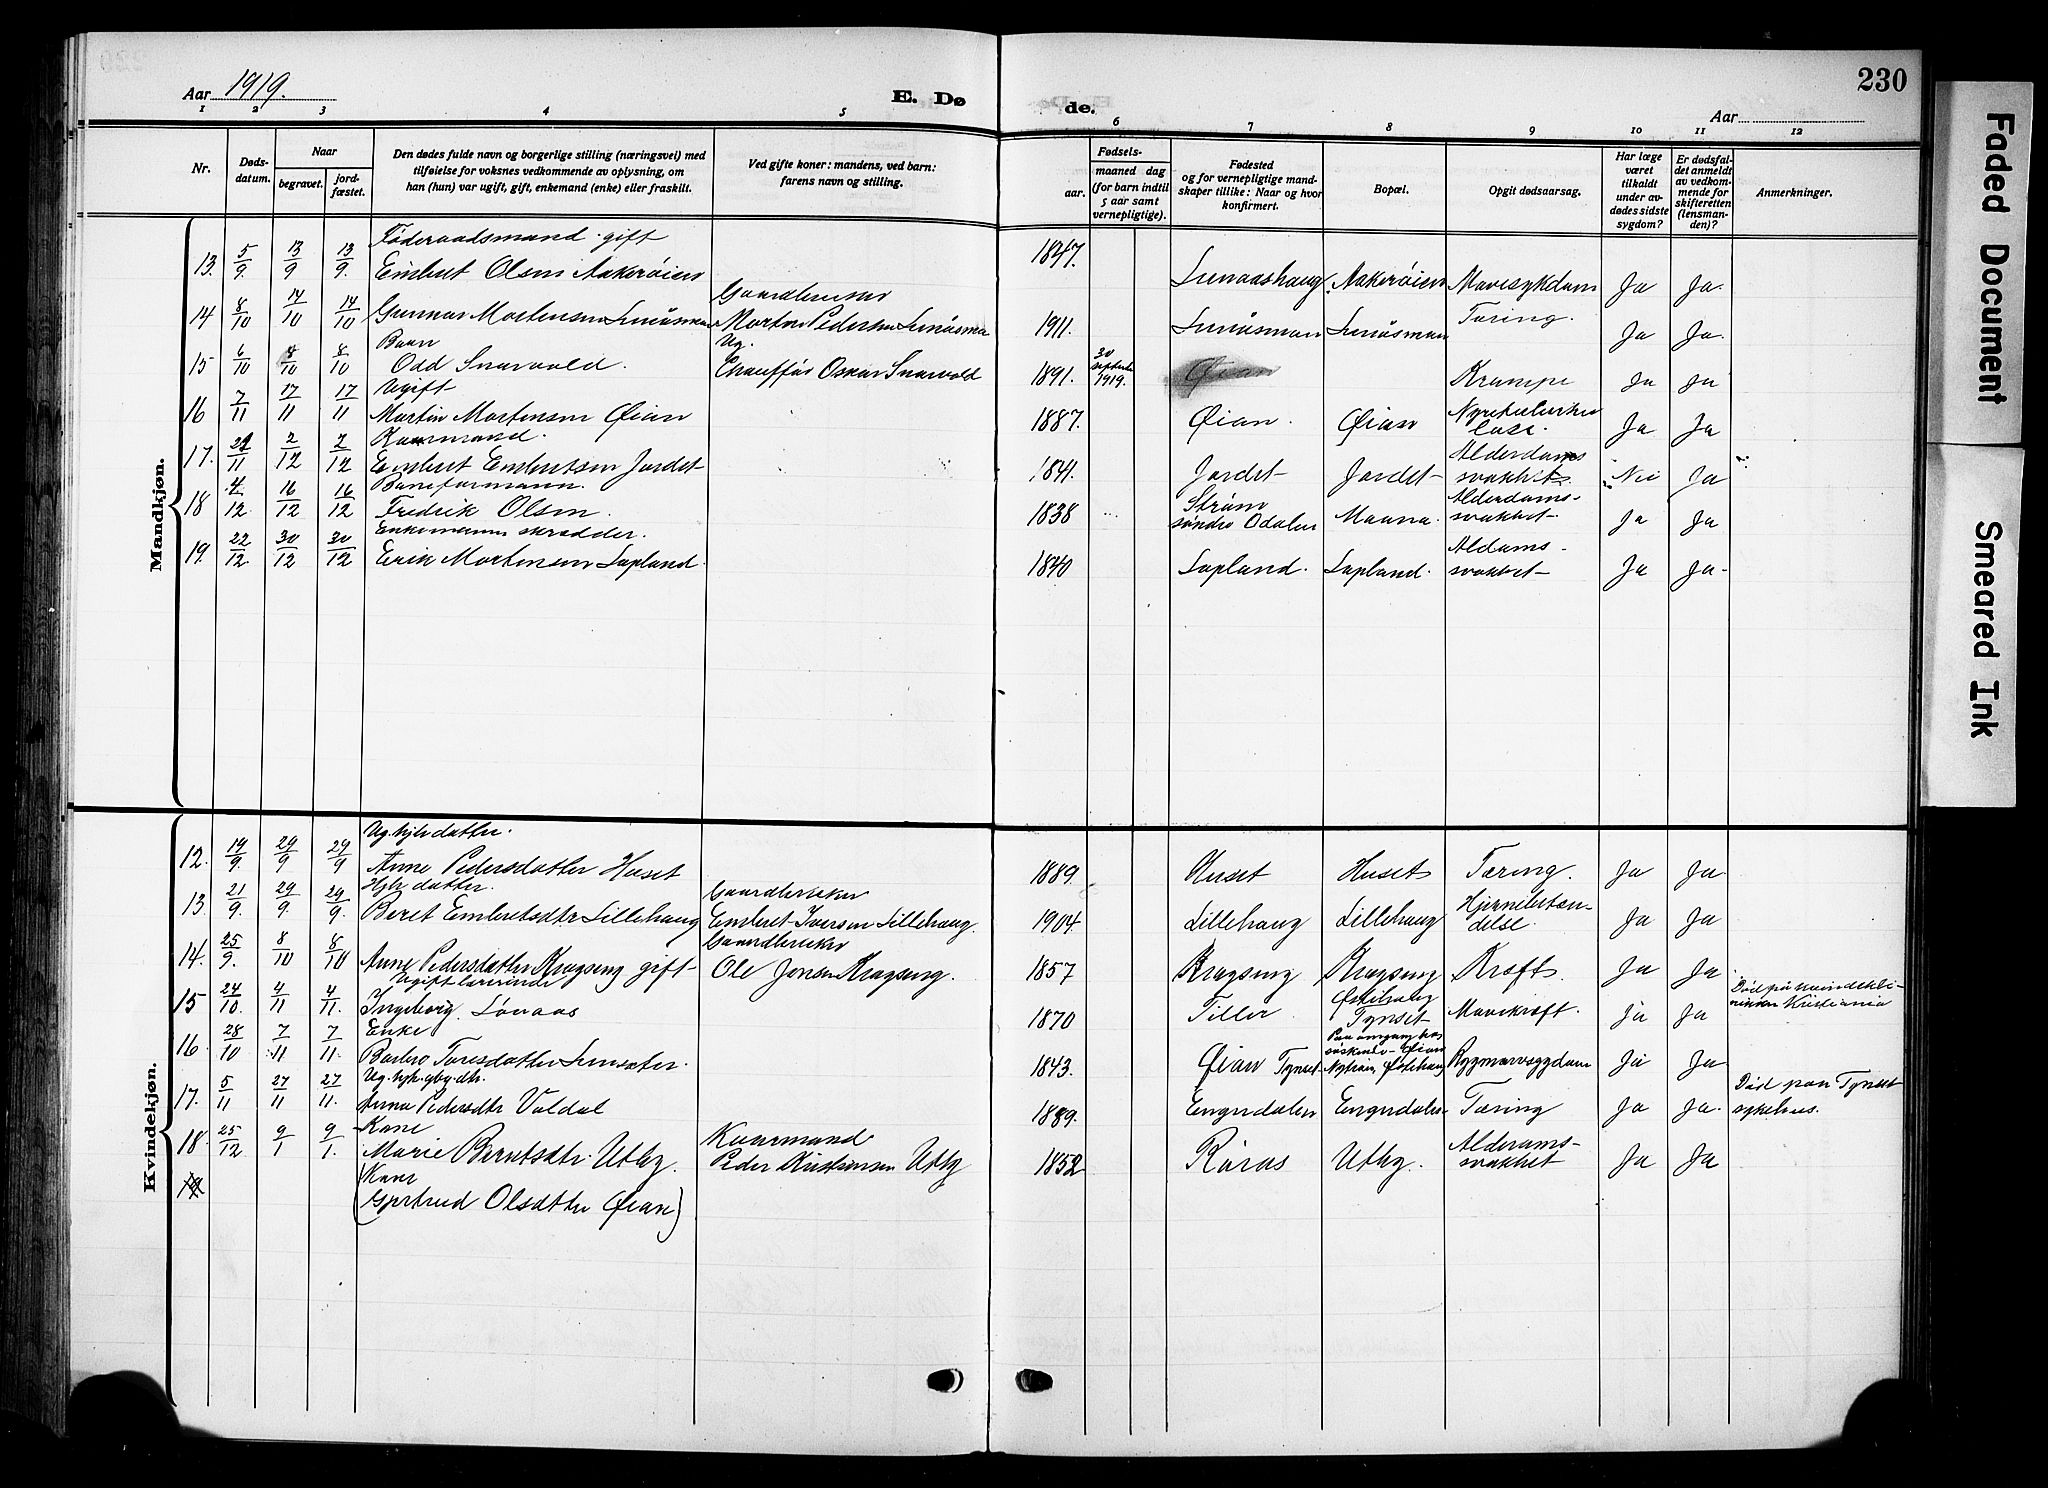 230
Aar 1919.
E. Dø de.
Aar
1 2 3 4 5 6 7 8 9 10 11 12
Nr.
Døds-
datum.
Naar
begravet.
jord-
fæstet.
Den dødes fulde navn og borgerlige stilling (næringsvei) med
tilføielse for voksnes vedkommende av oplysning, om
han (hun) var ugift, gift, enkemand (enke) eller fraskilt.
Ved gifte koner: mandens, ved barn:
farens navn og stilling.
Fødsels-
aar.
maaned dag
(for barn indtil
5 aar samt
vernepligtige).
Fødested
og for vernepligtige mand-
skaper tillike: Naar og hvor
konfirmert.
Bopæl.
Opgit dødsaarsag.
Har læge
været
tilkaldt
under av-
dødes sidste
sygdom?
Er dødsfal-
det anmeldt
av vedkom-
mende for
skifteretten
(lensman-
den)?
Anmerkninger.
Mandkjøn.
Føderaadsmand gift
13. 5/9. 13/9 13/9. Embret Olsen Aakerøien 1847. Aakerøien Mavesykdom Ja Ja.
Gaardbruker
14 8/10 14/10 14/10 Gunnar Mortensen Morten Pedersen 1911. Tæring. Ja Ja.
Barn Ug.
15 6/10 8/10 8/10 Odd Snarvold. Chauffør Oskar Snarvold 1891. 30 septembr 1919. Øian Krampe Ja Ja
Ugift
16 7/11 17/11 17/11 Martin Mortensen Øian 1887. Øian. Øian Ja Ja
Kaarmand.
17. 21/11 2/12 2/12 Embret Embretsen Jordet 1841. Jordet Jordet Alderdoms
svakhet. Nei Ja
Baneformann.
18 4/12 16/12 16/12 Fredrik Olsen. 1838 Strøm
søndre Odalen Maana. Alderdoms-
svakhet Ja Ja
Enkemann skrædder.
19. 22/12 30/12 30/12 Erik Mortensen Lapland. 1840 Lapland. Lapland. Aldoms-
svakhet Ja Ja
Kvindekjøn.
Ug. hjv datter.
12. 19/9. 29/9 29/9 Anne Pedersdatter Huset 1889. Huset Huset Tæring. Ja Ja
Hjv datter. Gaardbruker
13. 21/9. 29/9. 29/9. Beret Embretsdtr Lillehaug Embret Iversen Lillehaug. 1904. Lillehaug Lillehaug Hjernebetæn-
delse. Ja Ja
Gaardbruker
14. 25/9. 8/10 8/10 Anne Pedersdatter Kragseng gift Ole Jonsen Kragseng. 1857 Kragseng Kragseng Kræft. Ja Ja
Ugift lærerinde
15 24/10. 4/11 4/11. Ingeborg Lønaas 1870 Tiller Østihaug
Tynset Mavekræft. Ja Ja Død på kvindekli-
nikken Kristiania
Enke
16. 28/10 7/11 7/11. Barbro Toresdatter 1843. Øian Tynset Ja Ja
Ug. hjv. gby. dtr.
17. 5/11 27/11 27/11. Anna Pedersdtr Valdal 1889. Engerdalen Engerdalen Tæring Ja Ja. Død paa Tynset
sykehus.
Kone Kaarmand
18. 25/12 9/1 9/1. Marie Berntsdtr. Utby. Peder Kristiansen Utby 1852 Røros Utby. Alderdoms-
svakhet Ja Ja
Kone
(Gjertrud Olsdatter Øian)
Faded Document
Smeared Ink